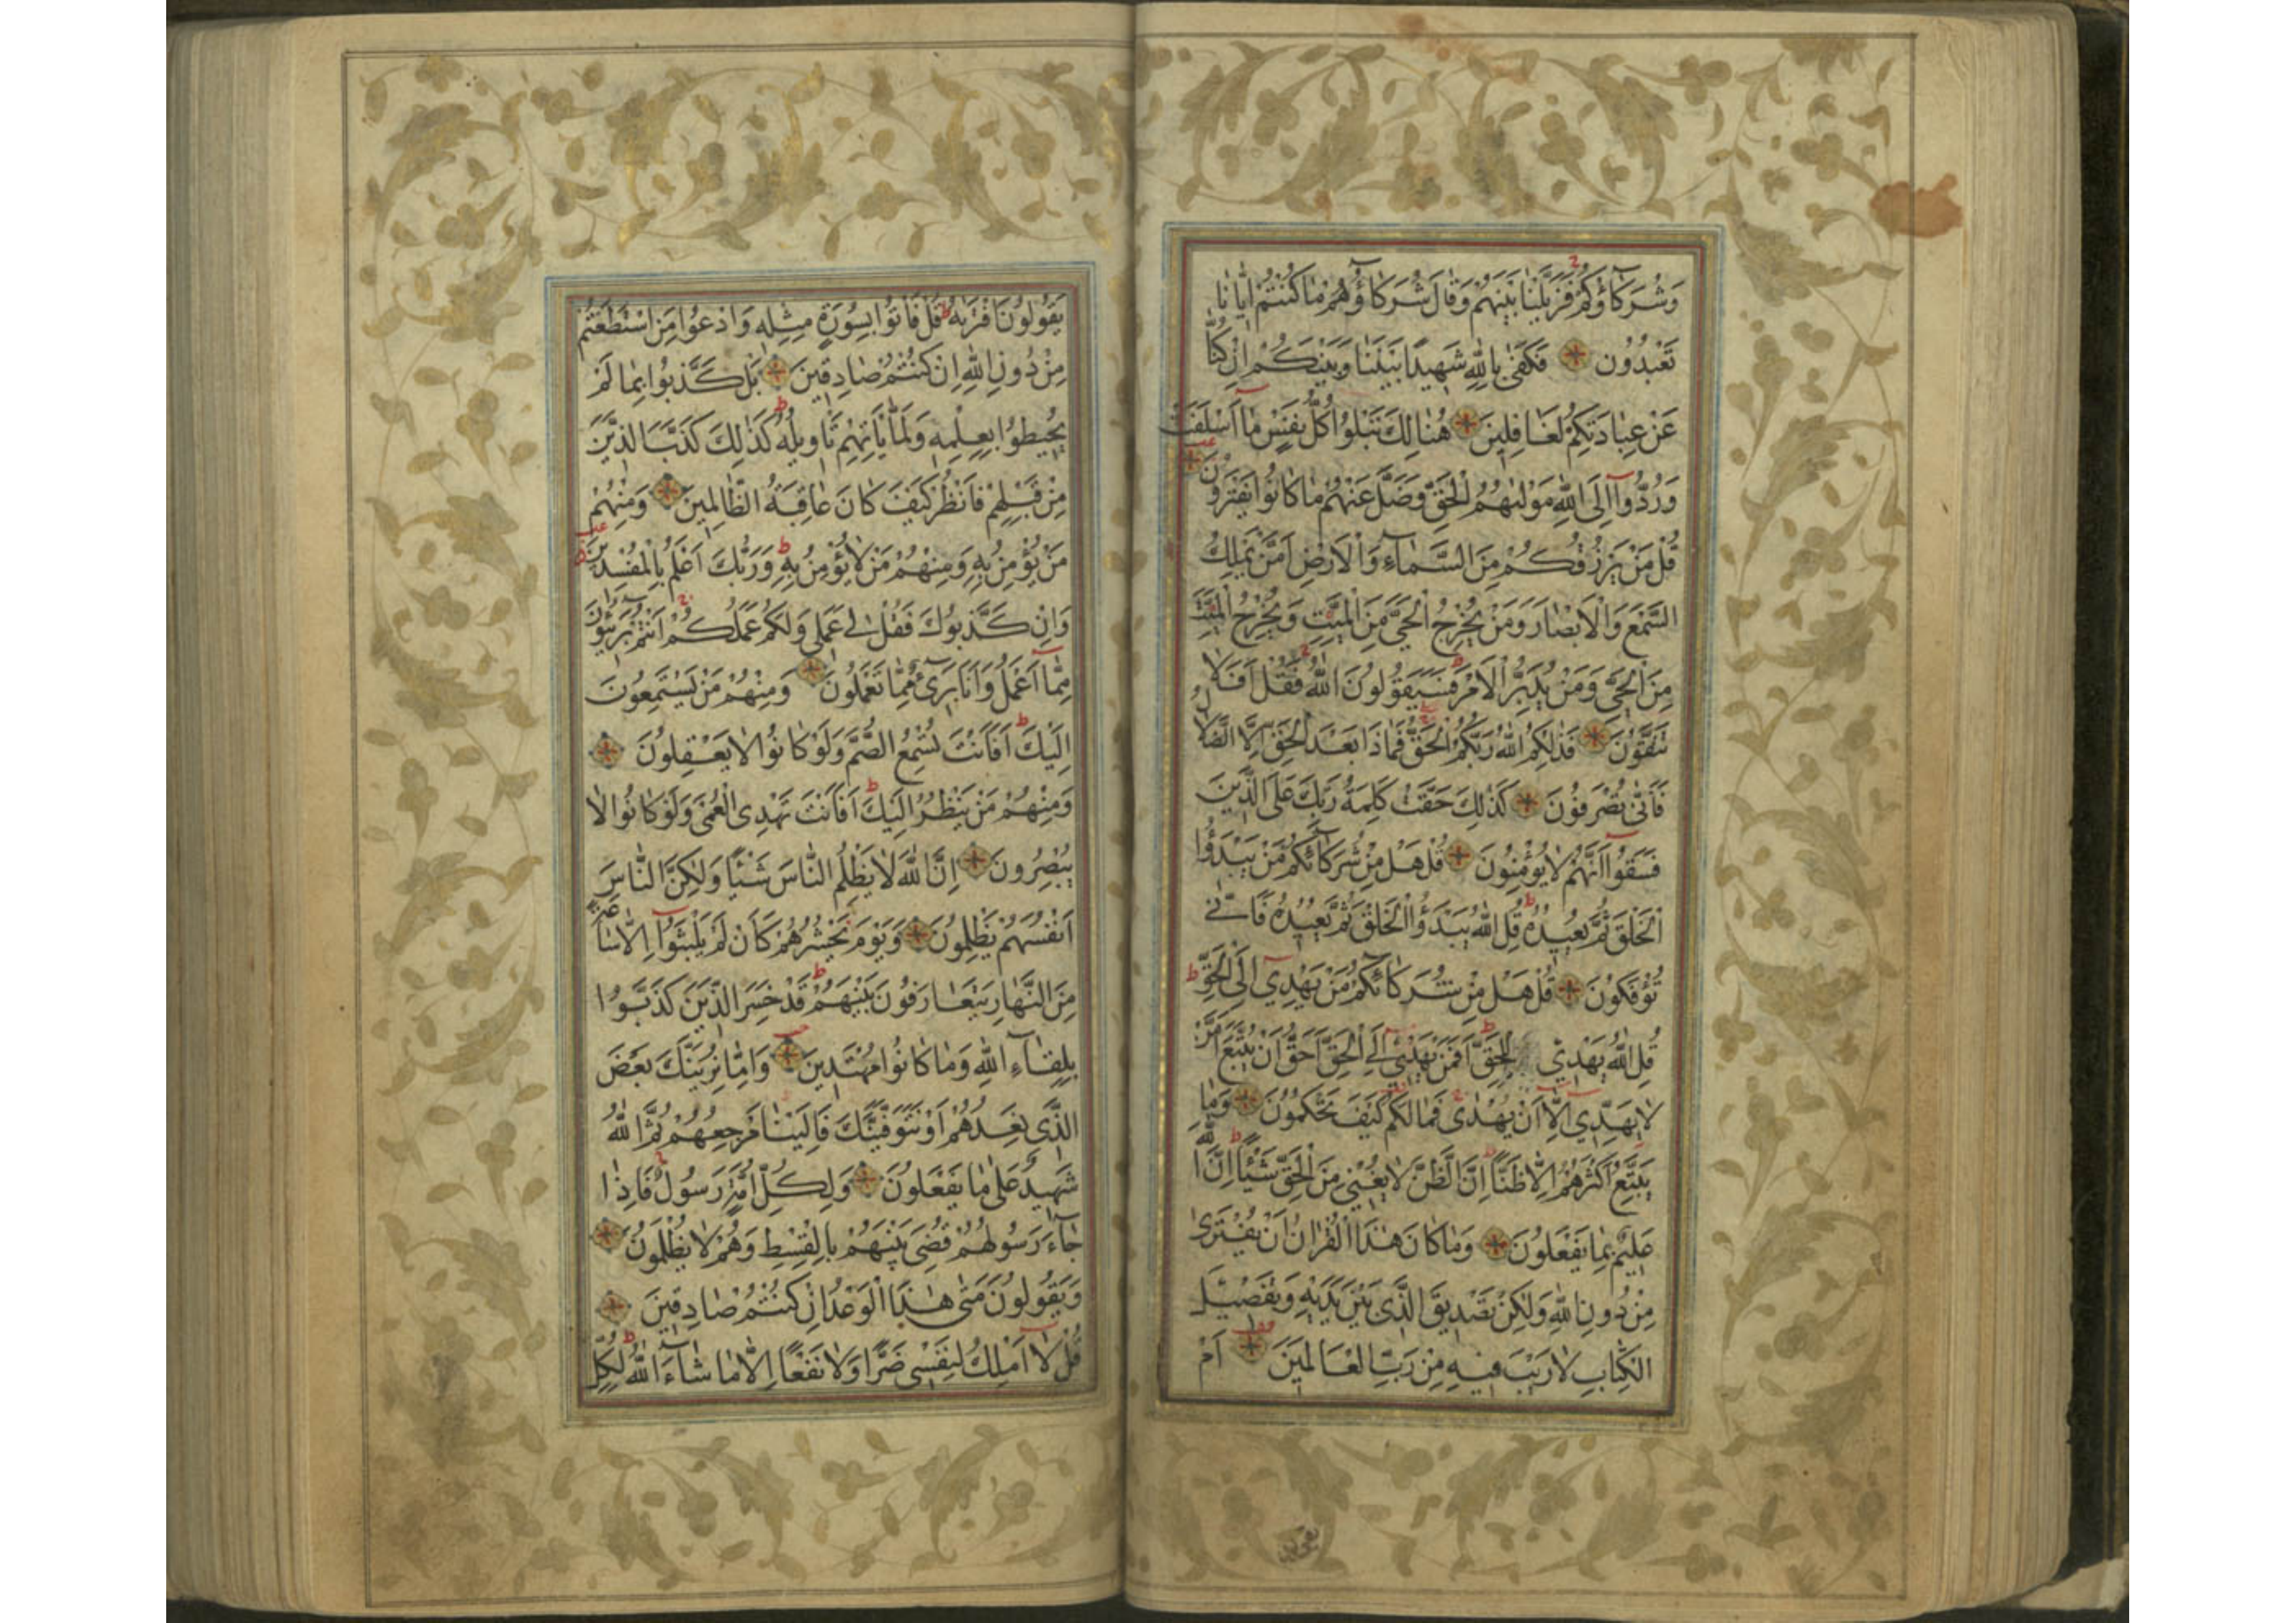 وَشُرَكَاؤُكُمْ فَزَيَّلْنَا بَيْنَهُمْ وَقَالَ شُرَكَاؤُهُمْ مَا كُنْتُمْ اِيَّانَا
تَعْبُدُونَ فَكَفٰى بِاللّٰهِ شَهِيدًا بَيْنَنَا وَبَيْنَكُمْ اِنْ كُنَّا
عَنْ عِبَادَتِكُمْ لَغَافِلِينَ هُنَالِكَ تَبْلُوا كُلُّ نَفْسٍ مَا اَسْلَفَتْ
وَرُدُّوا اِلَى اللّٰهِ مَوْلٰيهُمُ الْحَقِّ وَضَلَّ عَنْهُمْ مَا كَانُوا يَفْتَرُونَ
قُلْ مَنْ يَرْزُقُكُمْ مِنَ السَّمَاءِ وَالْاَرْضِ اَمَّنْ يَمْلِكُ
السَّمْعَ وَالْاَبْصَارَ وَمَنْ يُخْرِجُ الْحَيَّ مِنَ الْمَيِّتِ وَيُخْرِجُ الْمَيِّتَ
مِنَ الْحَيِّ وَمَنْ يُدَبِّرُ الْاَمْرَ فَسَيَقُولُونَ اللّٰهُ فَقُلْ اَفَلَا
تَتَّقُونَ فَذٰلِكُمُ اللّٰهُ رَبُّكُمُ الْحَقُّ فَمَاذَا بَعْدَ الْحَقِّ اِلَّا الضَّلَالُ
فَاَنّٰى تُصْرَفُونَ كَذٰلِكَ حَقَّتْ كَلِمَةُ رَبِّكَ عَلَى الَّذِينَ
فَسَقُوا اَنَّهُمْ لَا يُؤْمِنُونَ قُلْ هَلْ مِنْ شُرَكَائِكُمْ مَنْ يَبْدَؤُا
الْخَلْقَ ثُمَّ يُعِيدُهُ قُلِ اللّٰهُ يَبْدَؤُا الْخَلْقَ ثُمَّ يُعِيدُهُ فَاَنّٰى
تُؤْفَكُونَ قُلْ هَلْ مِنْ شُرَكَائِكُمْ مَنْ يَهْدِي اِلَى الْحَقِّ
قُلِ اللّٰهُ يَهْدِي لِلْحَقِّ اَفَمَنْ يَهْدِي اِلَى الْحَقِّ اَحَقُّ اَنْ يُتَّبَعَ اَمَّنْ
لَا يَهِدِّي اِلَّا اَنْ يُهْدٰى فَمَا لَكُمْ كَيْفَ تَحْكُمُونَ وَمَا
يَتَّبِعُ اَكْثَرُهُمْ اِلَّا ظَنًّا اِنَّ الظَّنَّ لَا يُغْنِي مِنَ الْحَقِّ شَيْئًا اِنَّ اللّٰهَ
عَلِيمٌ بِمَا يَفْعَلُونَ وَمَا كَانَ هٰذَا الْقُرْاٰنُ اَنْ يُفْتَرٰى
مِنْ دُونِ اللّٰهِ وَلٰكِنْ تَصْدِيقَ الَّذِي بَيْنَ يَدَيْهِ وَتَفْصِيلَ
الْكِتَابِ لَا رَيْبَ فِيهِ مِنْ رَبِّ الْعَالَمِينَ اَمْ
يَقُولُونَ افْتَرٰيهُ قُلْ فَاْتُوا بِسُورَةٍ مِثْلِهِ وَادْعُوا مَنِ اسْتَطَعْتُمْ
مِنْ دُونِ اللّٰهِ اِنْ كُنْتُمْ صَادِقِينَ بَلْ كَذَّبُوا بِمَا لَمْ
يُحِيطُوا بِعِلْمِهِ وَلَمَّا يَاْتِهِمْ تَاْوِيلُهُ كَذٰلِكَ كَذَّبَ الَّذِينَ
مِنْ قَبْلِهِمْ فَانْظُرْ كَيْفَ كَانَ عَاقِبَةُ الظَّالِمِينَ وَمِنْهُمْ
مَنْ يُؤْمِنُ بِهِ وَمِنْهُمْ مَنْ لَا يُؤْمِنُ بِهِ وَرَبُّكَ اَعْلَمُ بِالْمُفْسِدِينَ
وَاِنْ كَذَّبُوكَ فَقُلْ لِي عَمَلِي وَلَكُمْ عَمَلُكُمْ اَنْتُمْ بَرِيئُونَ
مِمَّا اَعْمَلُ وَاَنَا بَرِيءٌ مِمَّا تَعْمَلُونَ وَمِنْهُمْ مَنْ يَسْتَمِعُونَ
اِلَيْكَ اَفَاَنْتَ تُسْمِعُ الصُّمَّ وَلَوْ كَانُوا لَا يَعْقِلُونَ
وَمِنْهُمْ مَنْ يَنْظُرُ اِلَيْكَ اَفَاَنْتَ تَهْدِي الْعُمْيَ وَلَوْ كَانُوا لَا
يُبْصِرُونَ اِنَّ اللّٰهَ لَا يَظْلِمُ النَّاسَ شَيْئًا وَلٰكِنَّ النَّاسَ
اَنْفُسَهُمْ يَظْلِمُونَ وَيَوْمَ يَحْشُرُهُمْ كَاَنْ لَمْ يَلْبَثُوا اِلَّا سَاعَةً
مِنَ النَّهَارِ يَتَعَارَفُونَ بَيْنَهُمْ قَدْ خَسِرَ الَّذِينَ كَذَّبُوا
بِلِقَاءِ اللّٰهِ وَمَا كَانُوا مُهْتَدِينَ وَاِمَّا نُرِيَنَّكَ بَعْضَ
الَّذِي نَعِدُهُمْ اَوْ نَتَوَفَّيَنَّكَ فَاِلَيْنَا مَرْجِعُهُمْ ثُمَّ اللّٰهُ
شَهِيدٌ عَلٰى مَا يَفْعَلُونَ وَلِكُلِّ اُمَّةٍ رَسُولٌ فَاِذَا
جَاءَ رَسُولُهُمْ قُضِيَ بَيْنَهُمْ بِالْقِسْطِ وَهُمْ لَا يُظْلَمُونَ
وَيَقُولُونَ مَتٰى هٰذَا الْوَعْدُ اِنْ كُنْتُمْ صَادِقِينَ
قُلْ لَا اَمْلِكُ لِنَفْسِي ضَرًّا وَلَا نَفْعًا اِلَّا مَا شَاءَ اللّٰهُ لِكُلِّ